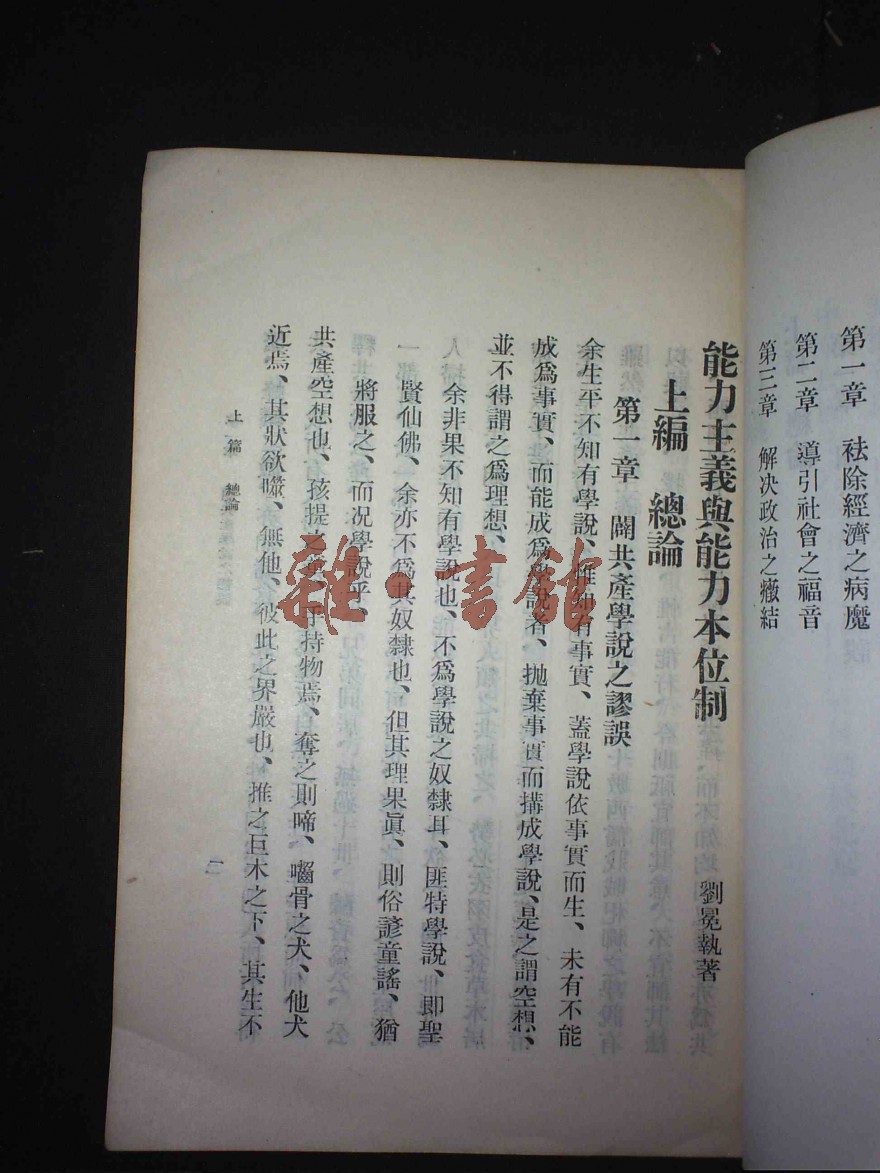 第一章　祛除經濟之病魔
第二章　導引社會之福音
第三章　解決政治之癥結
能力主義與能力本位制
劉冕執著
上編　總論
第一章　闢共產學說之謬誤
余生平不知有學說、惟知有事實、蓋學說依事實而生、未有不能
成爲事實、而能成爲學說者、拋棄事實而搆成學說、是之謂空想、
並不得謂之爲理想、
余非果不知有學說也、不爲學說之奴隸耳、匪特學說、即聖
賢仙佛、余亦不爲其奴隸也、但其理果眞、則俗諺童謠、猶
將服之、而况學說乎、
共產空想也、孩提之童、手持物焉、奪之則啼、嚙骨之犬、他犬
近焉、其狀欲噬、無他、彼此之界嚴也、推之巨木之下、其生不
上篇　總論
一
雜·書館